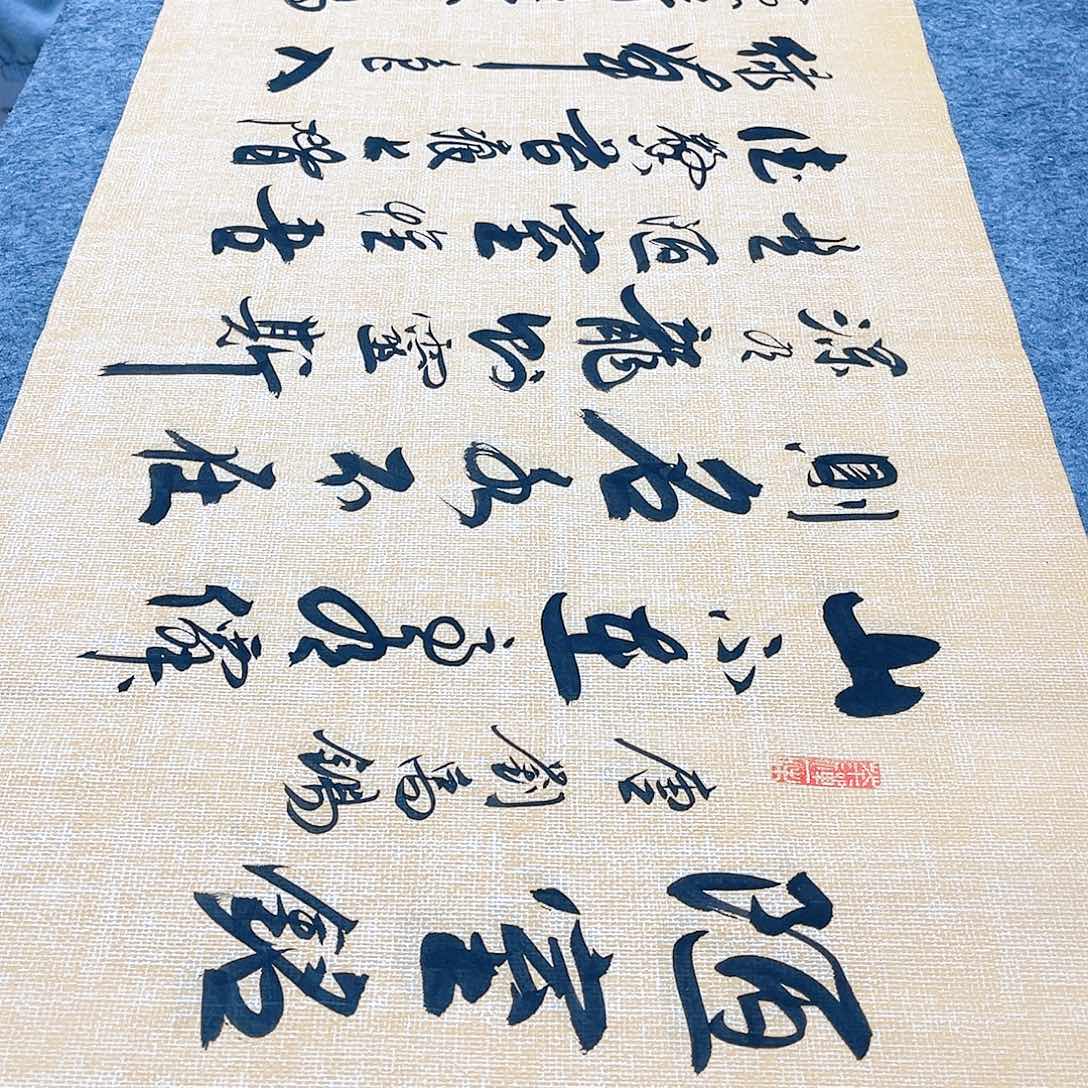 陋室銘
唐劉禹錫
山不在高有僊
則名水不在
深有龍則靈斯
是陋室惟吾
德馨苔痕上階
綠草色入